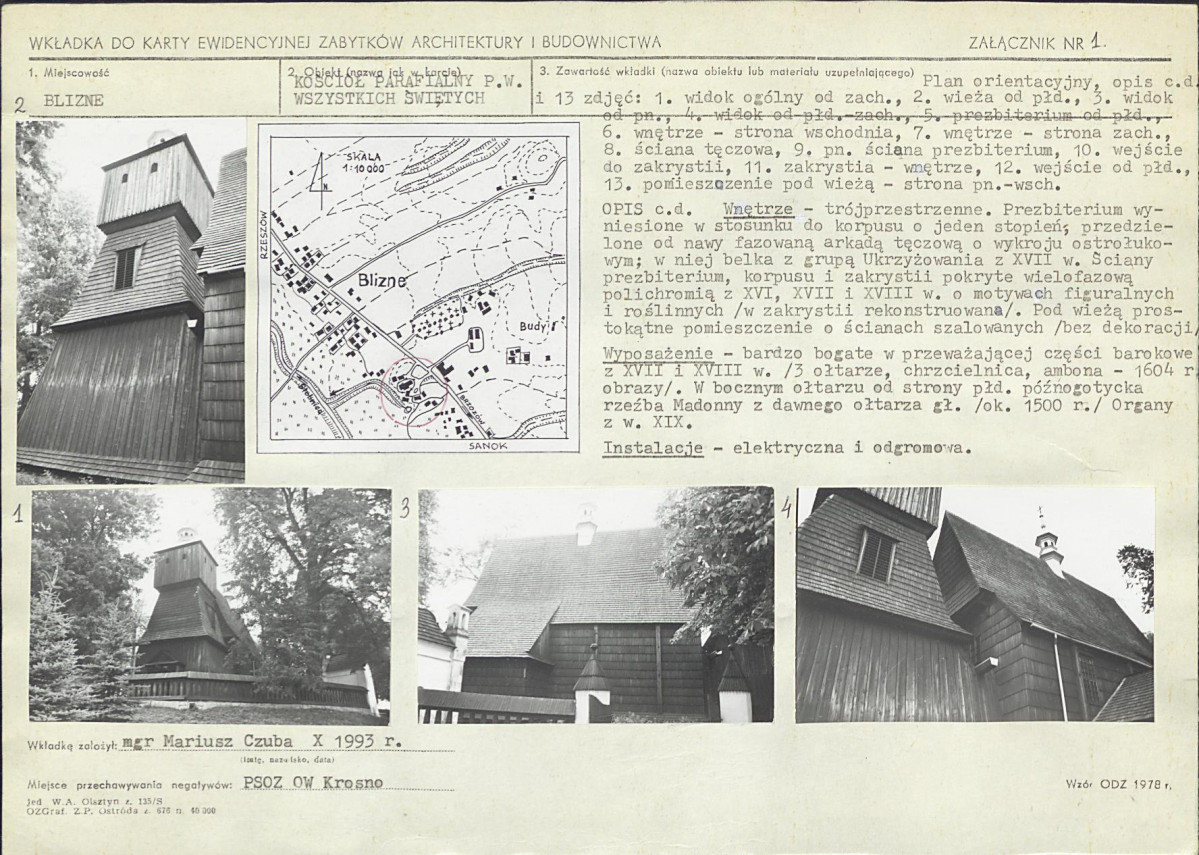 WKŁADKA DO KARTY EWIDENCYJNEJ ZABYTKÓW ARCHITEKTURY I BUDOWNICTWA
ZAŁĄCZNIK NR 1.
1. Miejscowość
BLIZNE
2. Obiekt (nazwa jak w karcie)
KOŚCIÓŁ PARAFIALNY P.W.
WSZYSTKICH ŚWIĘTYCH
3. Zawartość wkładki (nazwa obiektu lub materiału uzupełniającego) Plan orientacyjny, opis c.d.
i 13 zdjęć: 1. widok ogólny od zach., 2. wieża od płd., 3. widok
od pn., 4. widok od płd.-zach., 5. prezbiterium od płd.,
6. wnętrze - strona wschodnia, 7. wnętrze - strona zach.,
8. ściana tęczowa, 9. pn. ściana prezbiterium, 10. wejście
do zakrystii, 11. zakrystia - wnętrze, 12. wejście od płd.,
13. pomieszczenie pod wieżą - strona pn.-wsch.
OPIS c.d. Wnętrze - trójprzestrzenne. Prezbiterium wy-
niesione w stosunku do korpusu o jeden stopień, przedzie-
lone od nawy fazowaną arkadą tęczową o wykroju ostrołuko-
wym; w niej belka z grupą Ukrzyżowania z XVII w. Ściany
prezbiterium, korpusu i zakrystii pokryte wielofazową
polichromią z XVI, XVII i XVIII w. o motywach figuralnych
i roślinnych /w zakrystii rekonstruowana/. Pod wieżą pros-
tokątne pomieszczenie o ścianach szalowanych /bez dekoracji/
Wyposażenie - bardzo bogate w przeważającej części barokowe
z XVII i XVIII w. /3 ołtarze, chrzcielnica, ambona - 1604 r
obrazy/. W bocznym ołtarzu od strony płd. późnogotycka
rzeźba Madonny z dawnego ołtarza gł. /ok. 1500 r./ Organy
z w. XIX.
Instalacje - elektryczna i odgromowa.
2
SKALA
1:10 000
N
RZESZÓW
Blizne
Budy
Stobnica
BRZOZÓW
SANOK
1
3
4
Wkładkę założył: mgr Mariusz Czuba X 1993 r.
(imię, nazwisko, data)
Miejsce przechowywania negatywów: PSOZ OW Krosno
Wzór ODZ 1978 r.
Jed W.A. Olsztyn z. 135/S
OZGraf. Z.P. Ostróda z. 676 n. 40 000